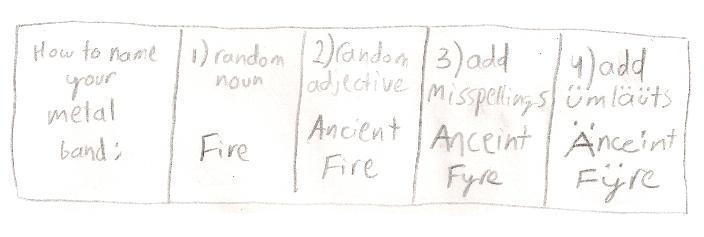 How to name
your
metal
band:
1) random
noun
Fire
2) random
adjective
Ancient
Fire
3) add
misspellings
Anceint
Fyre
4) add
ümläüts
Änceint
Fÿre